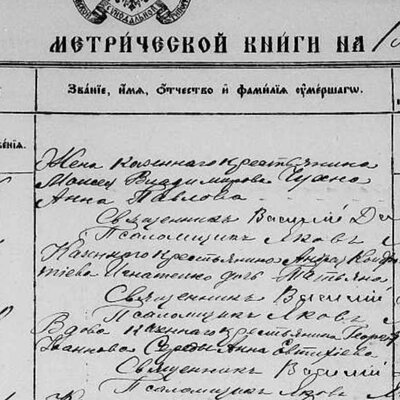 МЕТРИ́ЧЕСКОЙ КНИ́ГИ НА
Зва́нїе, и́мя, ѻ́тчество и҆ фами́лїя ᲂу҆ме́ршагѡ.
Жена казеннаго крестьянина
Моисея Владимирова Чухно
Анна Павлова
Священникъ Василій
Псаломщикъ Яковъ
Казеннаго крестьянина Андрея
Игнатенко дочь Татьяна
Священникъ Василій
Псаломщикъ Яковъ
Вдова казеннаго крестьянина Георгія
Иванова Середы Анна Евтихіева
Священникъ Василій
Псаломщикъ Яковъ